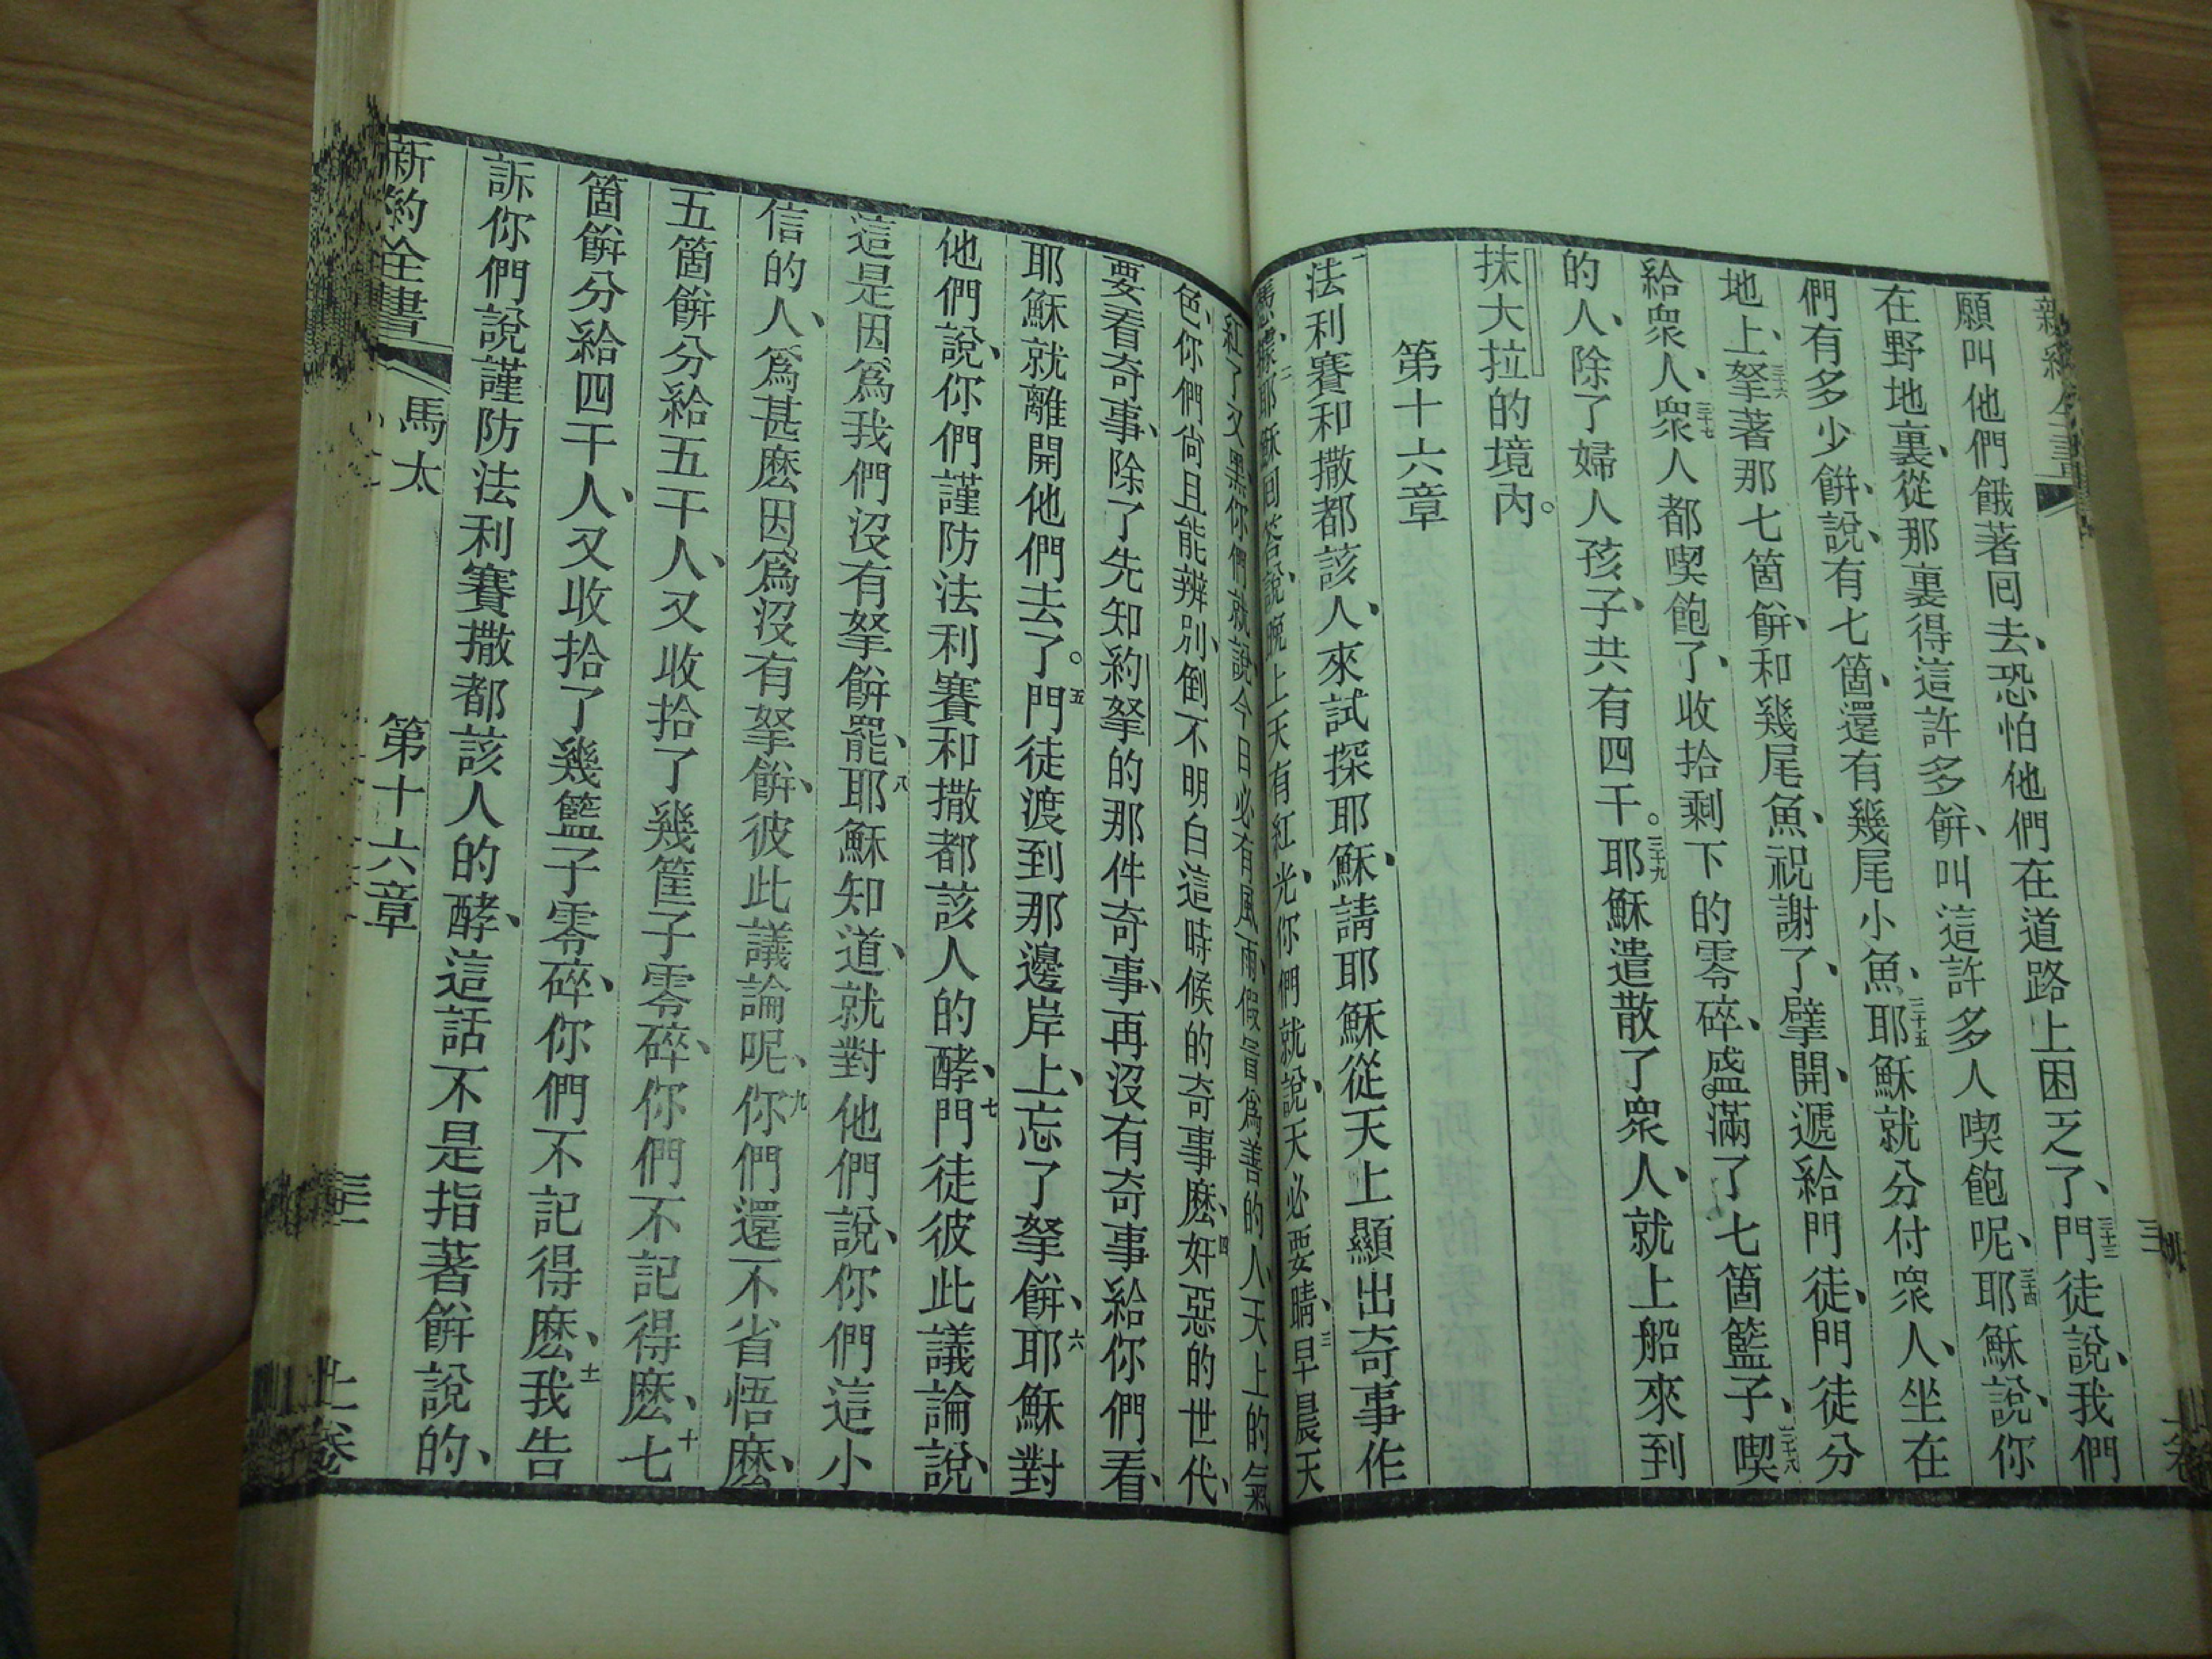 願叫他們餓著回去、恐怕他們在道路上困乏了、三十三門徒說、我們
在野地裏、從那裏得這許多餅、叫這許多人喫飽呢、三十四耶穌說、你
們有多少餅、說、有七箇、還有幾尾小魚、三十五耶穌就分付衆人、坐在
地上、三十六拏著那七箇餅、和幾尾魚、祝謝了、擘開、遞給門徒、門徒分
給衆人、三十七衆人都喫飽了、收拾剩下的零碎、盛滿了七箇籃子、三十八喫
的人、除了婦人孩子、共有四千。三十九耶穌遣散了衆人、就上船來到
抹大拉的境內。
第十六章
法利賽和撒都該人、來試探耶穌、請耶穌從天上顯出奇事作
憑據、二耶穌回答說、晚上天有紅光、你們就說、天必要晴、三早晨天
紅了又黑、你們就說今日必有風雨、假冒爲善的人、天上的氣
色、你們尙且能辨別、倒不明白這時候的奇事麽、四奸惡的世代、
要看奇事、除了先知約拏的那件奇事、再沒有奇事給你們看、
耶穌就離開他們去了。五門徒渡到那邊岸上、忘了拏餅、六耶穌對
他們說、你們謹防法利賽和撒都該人的酵、七門徒彼此議論說、
這是因爲我們沒有拏餅罷、八耶穌知道、就對他們說、你們這小
信的人、爲甚麽因爲沒有拏餅、彼此議論呢、九你們還不省悟麽、
五箇餅分給五千人、又收拾了幾筐子零碎、你們不記得麽、十七
箇餅分給四千人、又收拾了幾籃子零碎、你們不記得麽、十一我告
訴你們說謹防法利賽撒都該人的酵、這話不是指著餅說的、
新約全書 馬太 第十六章 上卷